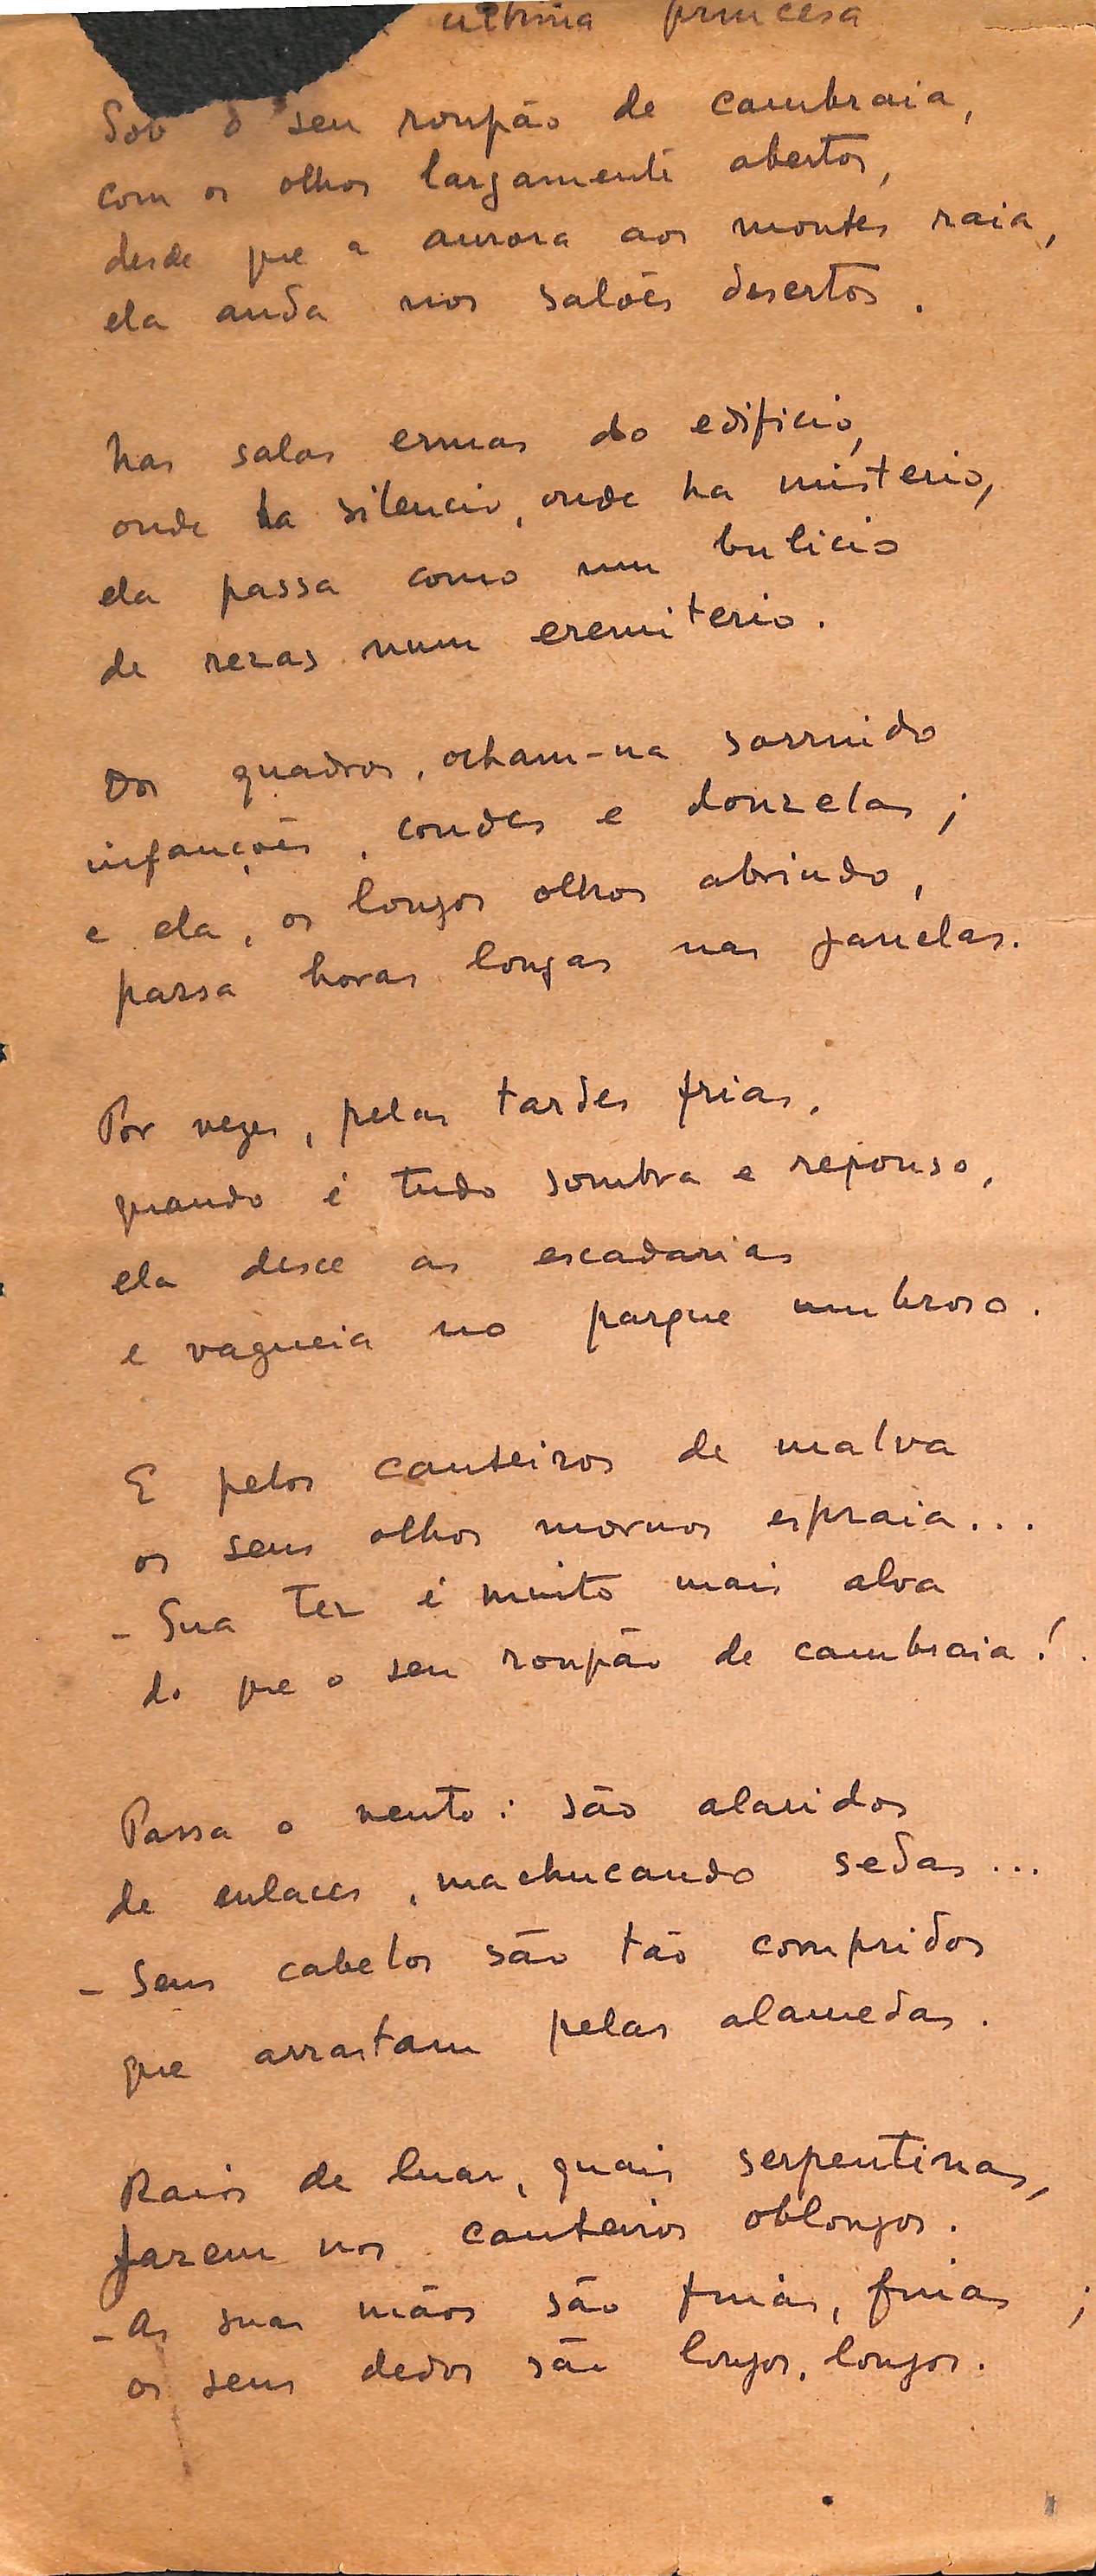 ultima princesa
Sob o seu roupão de cambraia,
com os olhos largamente abertos,
desde que a aurora aos montes raia,
ela anda nos salões desertos.
Nas salas ermas do edificio,
onde ha silencio, onde ha misterio,
ela passa como um bulicio
de rezas num eremiterio.
Dos quadros, olham-na sorrindo
infanções, condes e donzelas;
e ela, os longos olhos abrindo,
passa horas longas nas janelas.
Por vezes, pelas tardes frias,
quando é tudo sombra e repouso,
ela desce as escadarias
e vagueia no parque umbroso.
E pelos canteiros de malva
os seus olhos mornos espraia...
- Sua tez é muito mais alva
do que o seu roupão de cambraia!
Passa o vento: são alaridos
de enlaces, machucando sedas...
- Seus cabelos são tão compridos
que arrastam pelas alamedas.
Raios de luar, quais serpentinas,
jazem nos canteiros oblongos.
- As suas mãos são frias, frias;
os seus dedos são longos, longos.